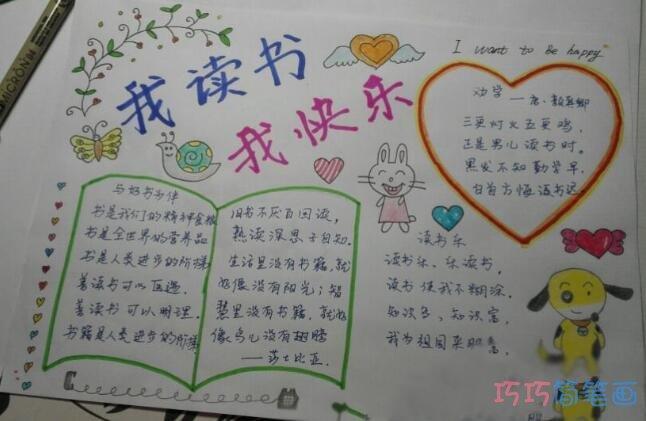 MICRON 04
I want to be happy
我读书
我快乐
劝学 —唐·颜真卿
三更灯火五更鸡,
正是男儿读书时。
黑发不知勤学早,
白首方悔读书迟。
与好书为伴
书是我们的精神食粮
书是全世界的营养品
书是人类进步的阶梯
善读书可以医愚
善读书可以明理
书籍是人类进步的阶梯
旧书不厌百回读,
熟读深思子自知.
生活里没有书籍,就
好像没有阳光;智
慧里没有书籍,就好
像鸟儿没有翅膀
——莎士比亚.
读书乐
读书乐、乐读书,
读书使我不糊涂.
知识多,知识富,
我为祖国来
巧巧简笔画